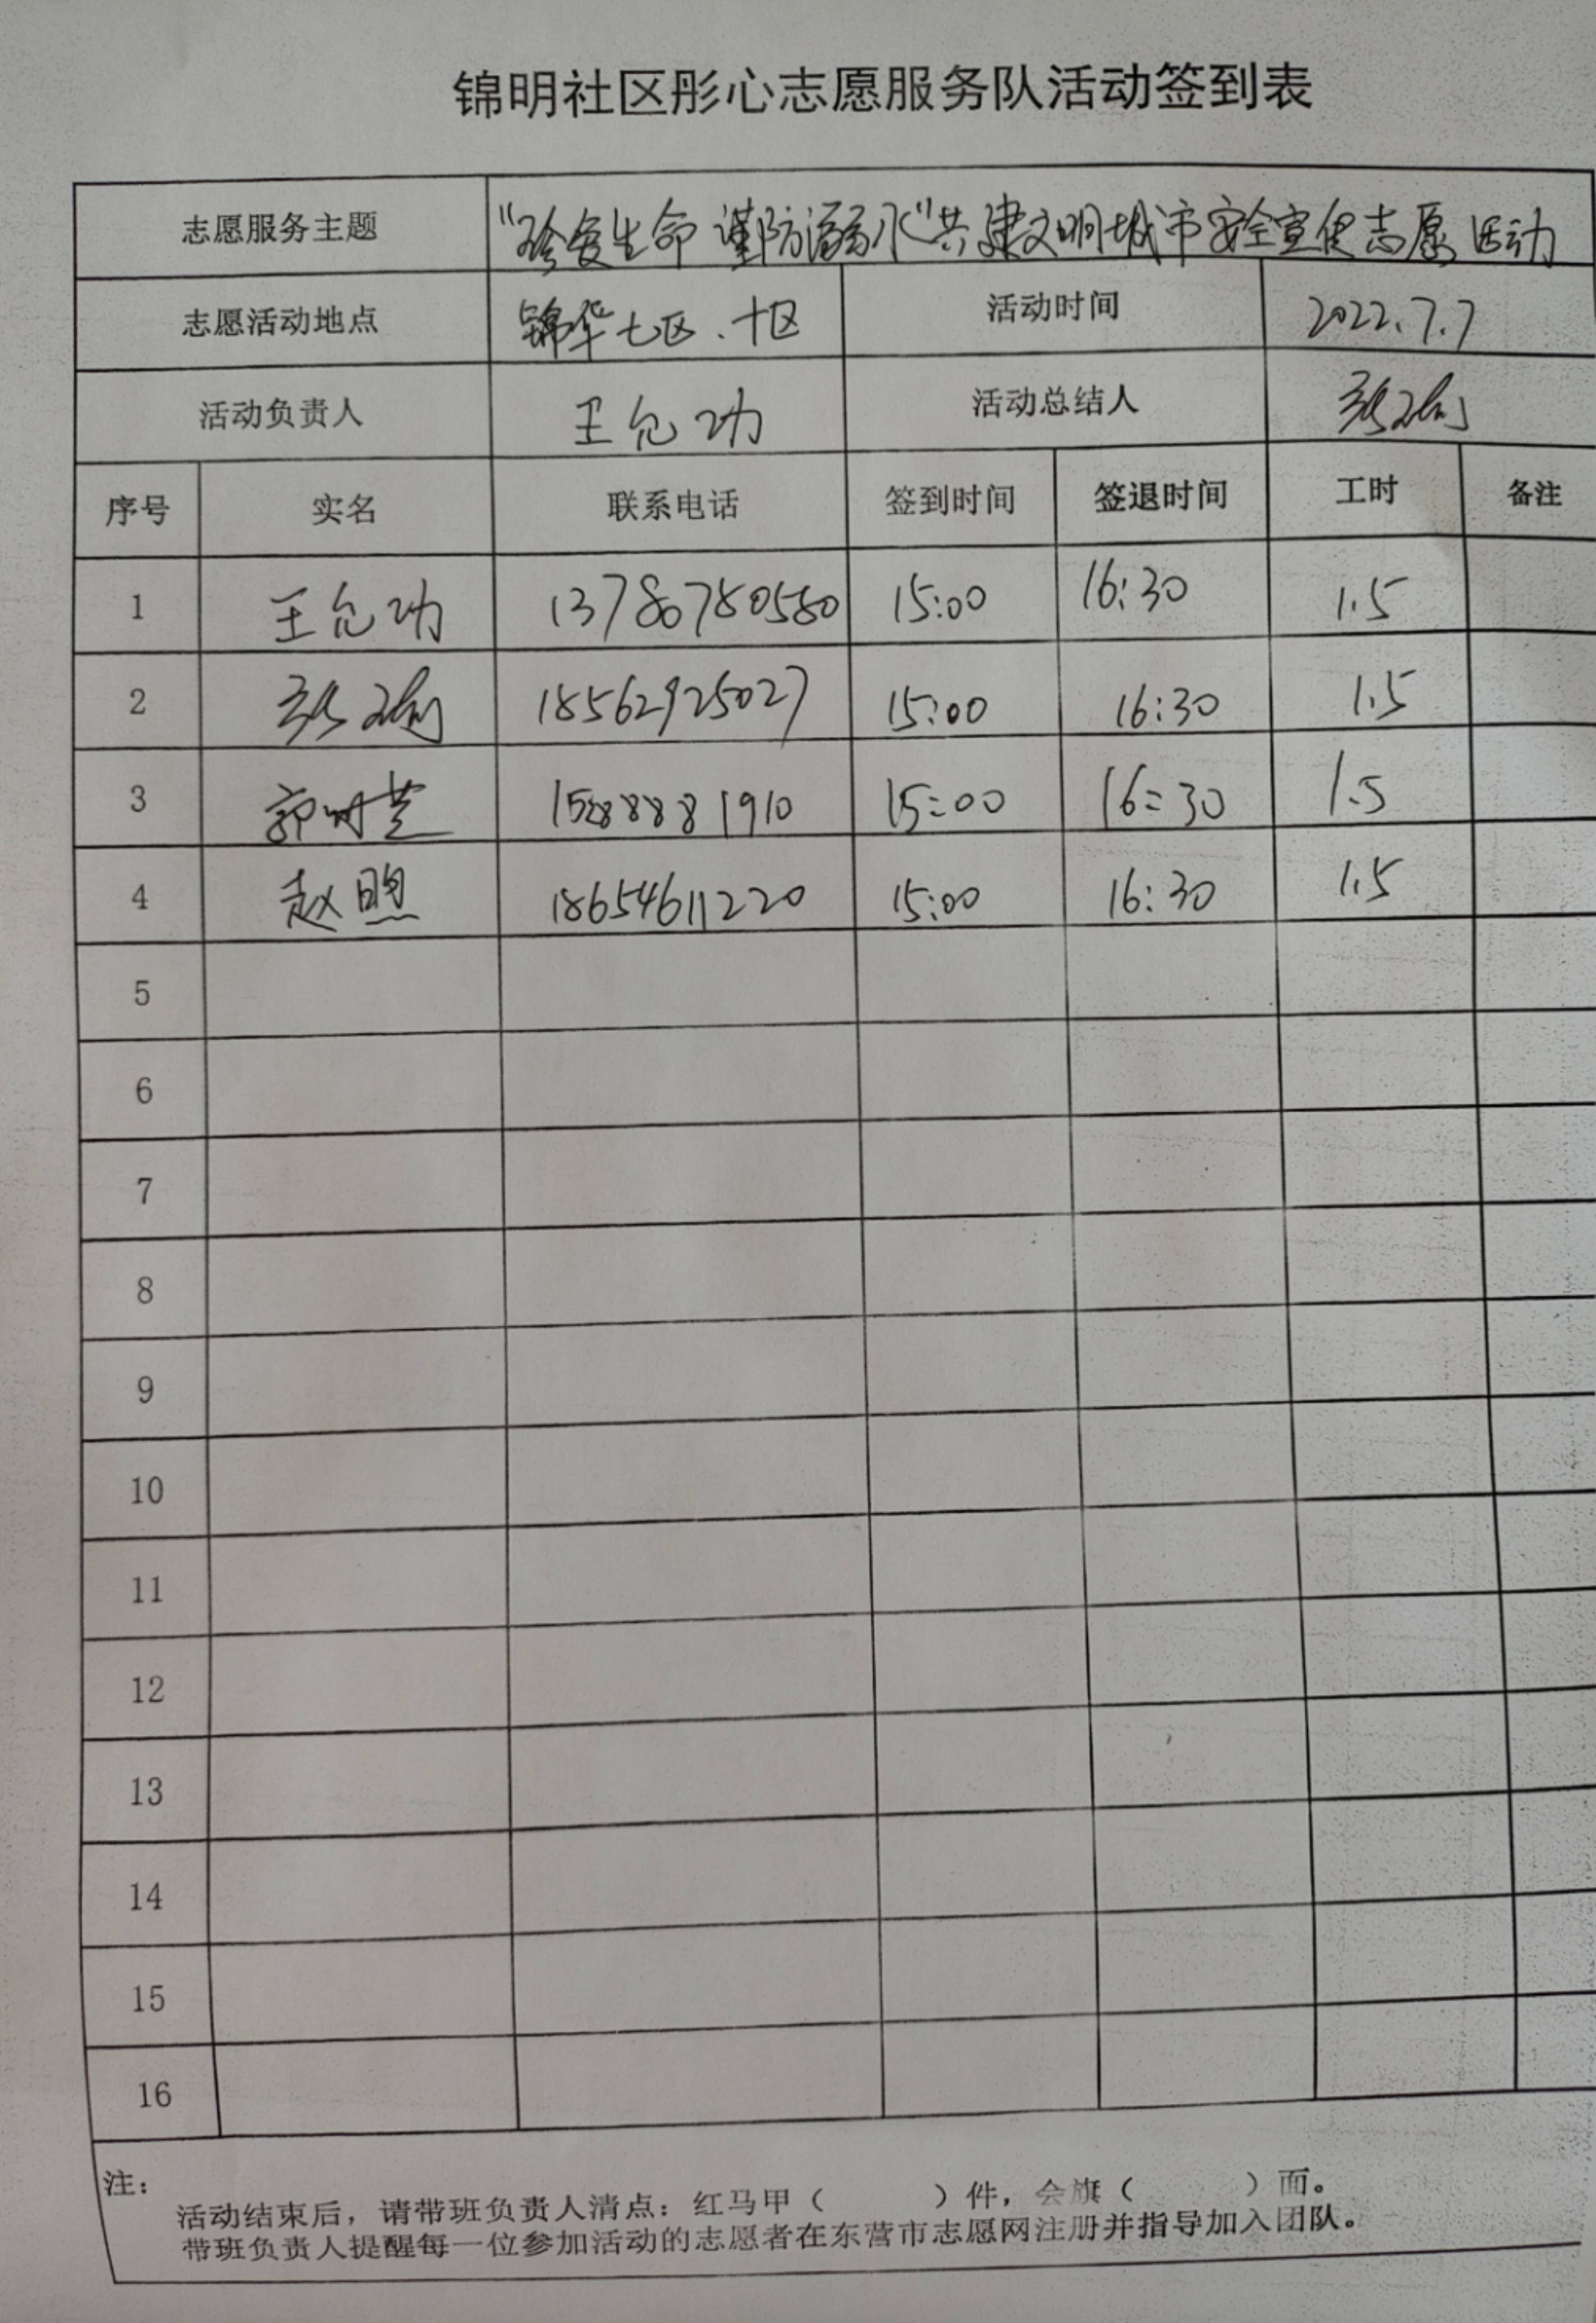 锦明社区彤心志愿服务队活动签到表
志愿服务主题 "珍爱生命 谨防溺水"共建文明城市安全宣传志愿活动
志愿活动地点 锦华七区、十区 活动时间 2022.7.7
活动负责人 王允功 活动总结人
序号 实名 联系电话 签到时间 签退时间 工时 备注
1 王允功 13780780580 15:00 16:30 1.5
2 18562925027 15:00 16:30 1.5
3 15888881910 15:00 16:30 1.5
4 赵煦 18654611220 15:00 16:30 1.5
5
6
7
8
9
10
11
12
13
14
15
16
注：
活动结束后，请带班负责人清点：红马甲（ ）件，会旗（ ）面。
带班负责人提醒每一位参加活动的志愿者在东营市志愿网注册并指导加入团队。